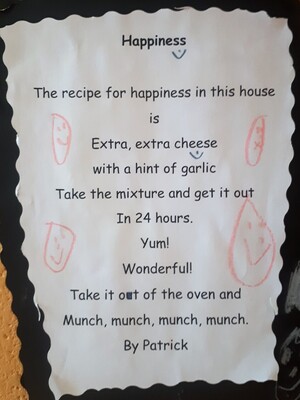 Happiness
The recipe for happiness in this house
is
Extra, extra cheese
with a hint of garlic
Take the mixture and get it out
In 24 hours.
Yum!
Wonderful!
Take it out of the oven and
Munch, munch, munch, munch.
By Patrick